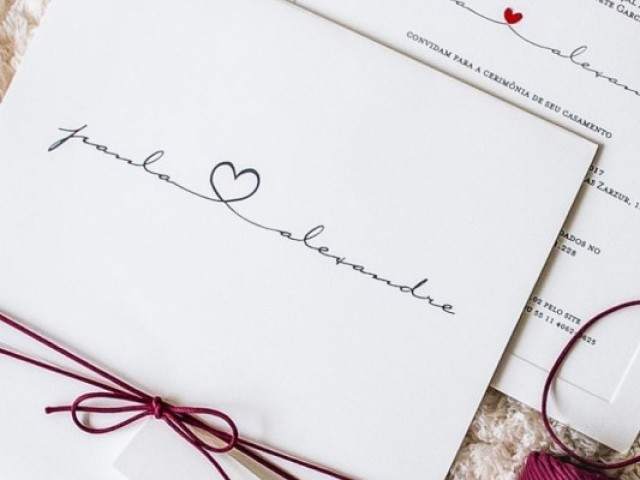 paula alexandre
RTE GARC
alexan
CONVIDAM PARA A CERIMÔNIA DE SEU CASAMENTO
2017
AS ZARZUR, 1
DADOS NO
.228
02 PELO SITE
55 11 4062